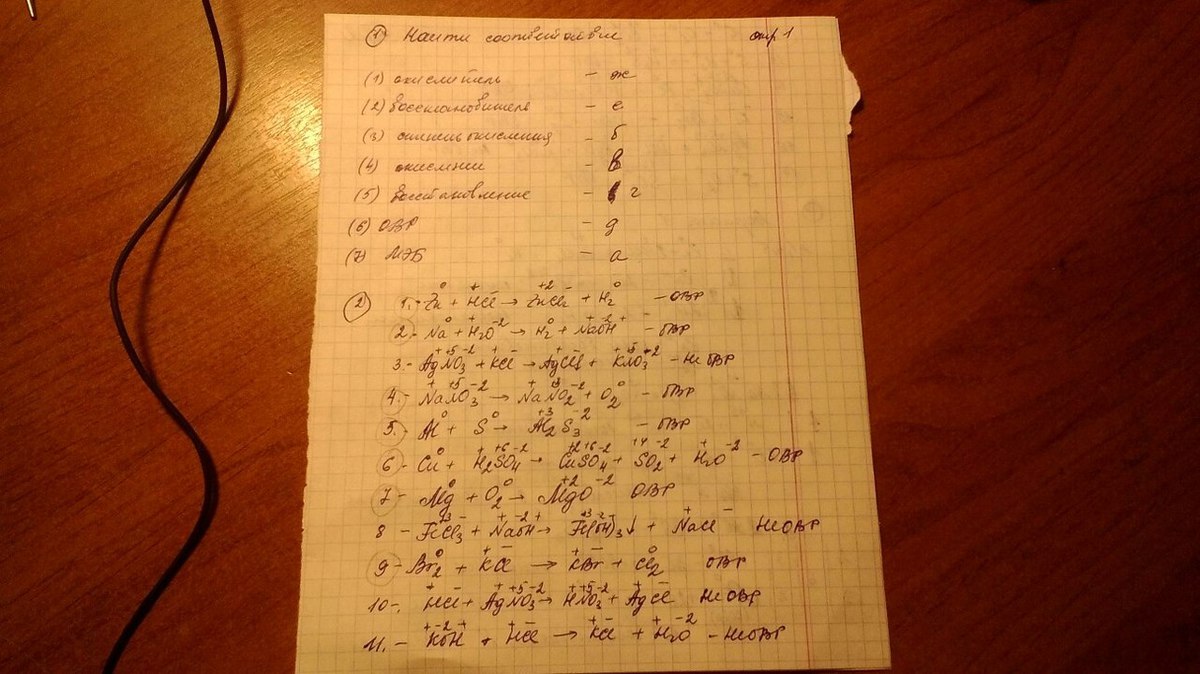 1 Найти соответствие стр 1
(1) окислитель – ж
(2) восстановитель – е
(3) степень окисления – б
(4) окислении – в
(5) восстановление – г
(6) ОВР – д
(7) МЭБ – а
2 1. - Zn⁰ + H⁺Cl⁻ → Zn⁺²Cl₂⁻ + H₂⁰ – ОВР
2. - Na⁰ + H₂⁺O⁻² → H₂⁰ + Na⁺O⁻²H⁺ – ОВР
3. - Ag⁺N⁺⁵O₃⁻² + K⁺Cl⁻ → Ag⁺Cl⁻ + K⁺N⁺⁵O₃⁻² – Не ОВР
4. - Na⁺N⁺⁵O₃⁻² → Na⁺N⁺³O₂⁻² + O₂⁰ – ОВР
5. - Al⁰ + S⁰ → Al₂⁺³S₃⁻² – ОВР
6 - Cu⁰ + H₂⁺S⁺⁶O₄⁻² → Cu⁺²S⁺⁶O₄⁻² + S⁺⁴O₂⁻² + H₂⁺O⁻² – ОВР
7 - Mg⁰ + O₂⁰ → Mg⁺²O⁻² ОВР
8 - Fe⁺³Cl₃⁻ + Na⁺O⁻²H⁺ → Fe⁺³(O⁻²H⁺)₃↓ + Na⁺Cl⁻ Не ОВР
9 - Br₂⁰ + K⁺Cl⁻ → K⁺Br⁻ + Cl₂⁰ ОВР
10 -. H⁺Cl⁻ + Ag⁺N⁺⁵O₃⁻² → H⁺N⁺⁵O₃⁻² + Ag⁺Cl⁻ Не ОВР
11. - K⁺O⁻²H⁺ + H⁺Cl⁻ → K⁺Cl⁻ + H₂⁺O⁻² – Не ОВР